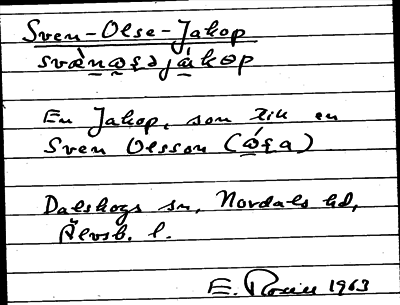 Sven-Olse-Jakop
svæ̀nωꞩəjákop
En Jakop, son till en
Sven Olsson (ώꞩa)
Dalskogs sn, Nordals hd,
Älvsb. l.
E. 1963